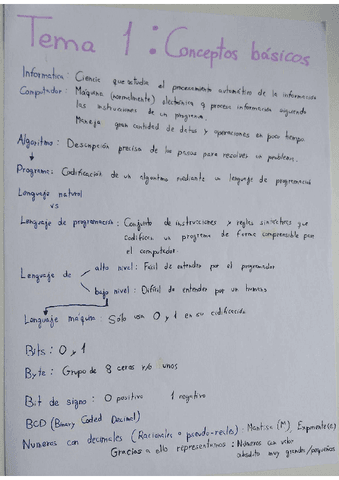 Tema 1: Conceptos básicos
Informatica: Ciencia que estudia el procesamiento automático de la información
Computador: Máquina (normalmente) electrónica q procesa información siguiendo
las instrucciones de un programa.
Maneja gran cantidad de datos y operaciones en poco tiempo
Algoritmo: Descripción precisa de los pasos para resolver un problema.
Programa: Codificación de un algoritmo mediante un lenguaje de programació
Lenguaje natural
vs
Lenguaje de programación: Conjunto de instrucciones y reglas sintácticas que
codifican un programa de forma comprensible para
el computador.
Lenguaje de
alto nivel: Fácil de entender por el programador
bajo nivel: Difícil de entender por un humano
Lenguaje máquina: Solo usa 0 y 1 en su codificación
Bits: 0 y 1
Byte: Grupo de 8 ceros y/o unos
Bit de signo: 0 positivo 1 negativo
BCD (Binary Coded Decimal)
Numeros con decimales (Racionales o pseudo-reales) - Mantisa (M), Exponente(e)
Gracias a ello representamos: Números con valor
absoluto muy grandes/pequeños